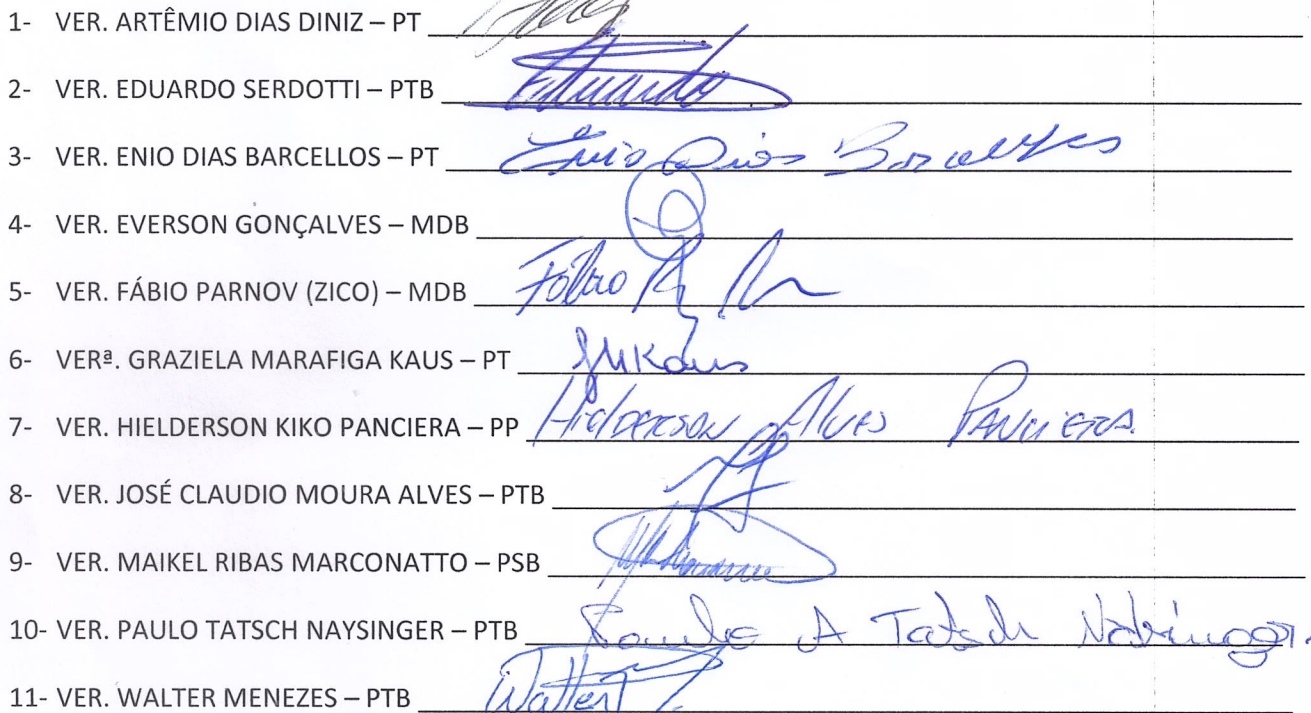 1- VER. ARTÊMIO DIAS DINIZ – PT
2- VER. EDUARDO SERDOTTI – PTB Eduardo
3- VER. ENIO DIAS BARCELLOS – PT Enio Dias Barcellos
4- VER. EVERSON GONÇALVES – MDB
5- VER. FÁBIO PARNOV (ZICO) – MDB Fábio
6- VERª. GRAZIELA MARAFIGA KAUS – PT GMKaus
7- VER. HIELDERSON KIKO PANCIERA – PP Hielderson Alves Panciera
8- VER. JOSÉ CLAUDIO MOURA ALVES – PTB
9- VER. MAIKEL RIBAS MARCONATTO – PSB
10- VER. PAULO TATSCH NAYSINGER – PTB A Tatsch
11- VER. WALTER MENEZES – PTB Walter